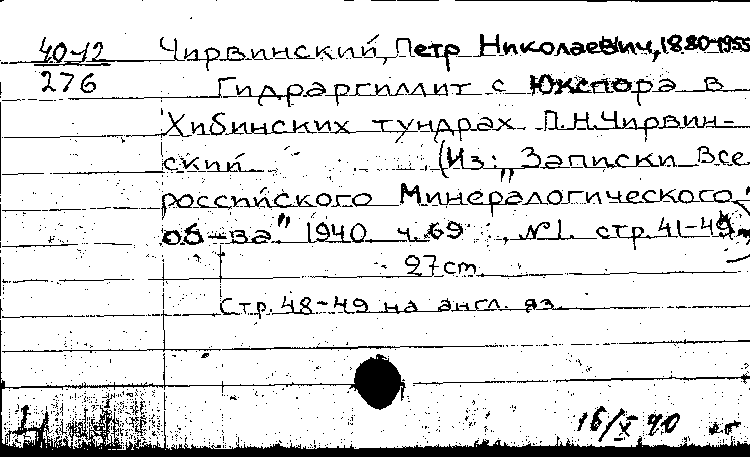 40-12 Чирвинский, Петр Николаевич, 1880-1955
276 Гидраргиллит с Юкспора в
Хибинских тундрах П.Н. Чирвин-
ский (Из: „Записки Все
российского Минералогического
об-ва." 1940. ч. 69, №1. стр. 41-49
27cm.
Стр. 48-49 на англ. яз.
16/X 40